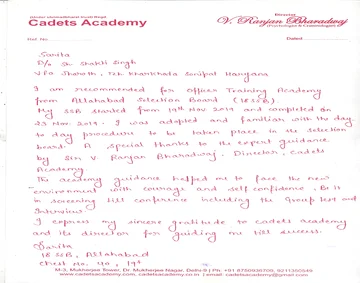 Cadets Academy
Director
V. Ranjan Bharadwaj
(Psychologist & Criminologist)
Ref. No.
Dated
Sarita
D/o Sh. Shakti Singh
VPO Teh. Kharkhoda Sonipat Haryana
I am recommended for Officer Training Academy
from Allahabad Selection Board (18 SSB)
My SSB started from 19th Nov 2014 and completed on
23 Nov. 2014. I was adopted and familiar with the day
to day procedure to be taken place in the selection
board. A special thanks to the expert guidance
by Sir V Ranjan Bharadwaj, Director, cadets
Academy.
The academy guidance helped me to face the new
environment with courage and self confidence. Be it
in screening till conference including the Group test and
Interview.
I express my sincere gratitude to cadets academy
and its director for guiding me till success.
Sarita
18 SSB, Allahabad
Chest No. 40,
M-3, Mukherjee Tower, Dr. Mukherjee Nagar, Delhi-9 | Ph: +91 8750936709, 9211350549
www.cadetsacademy.com, cadetsacademy.co.in | email: cadetsacademy@gmail.com